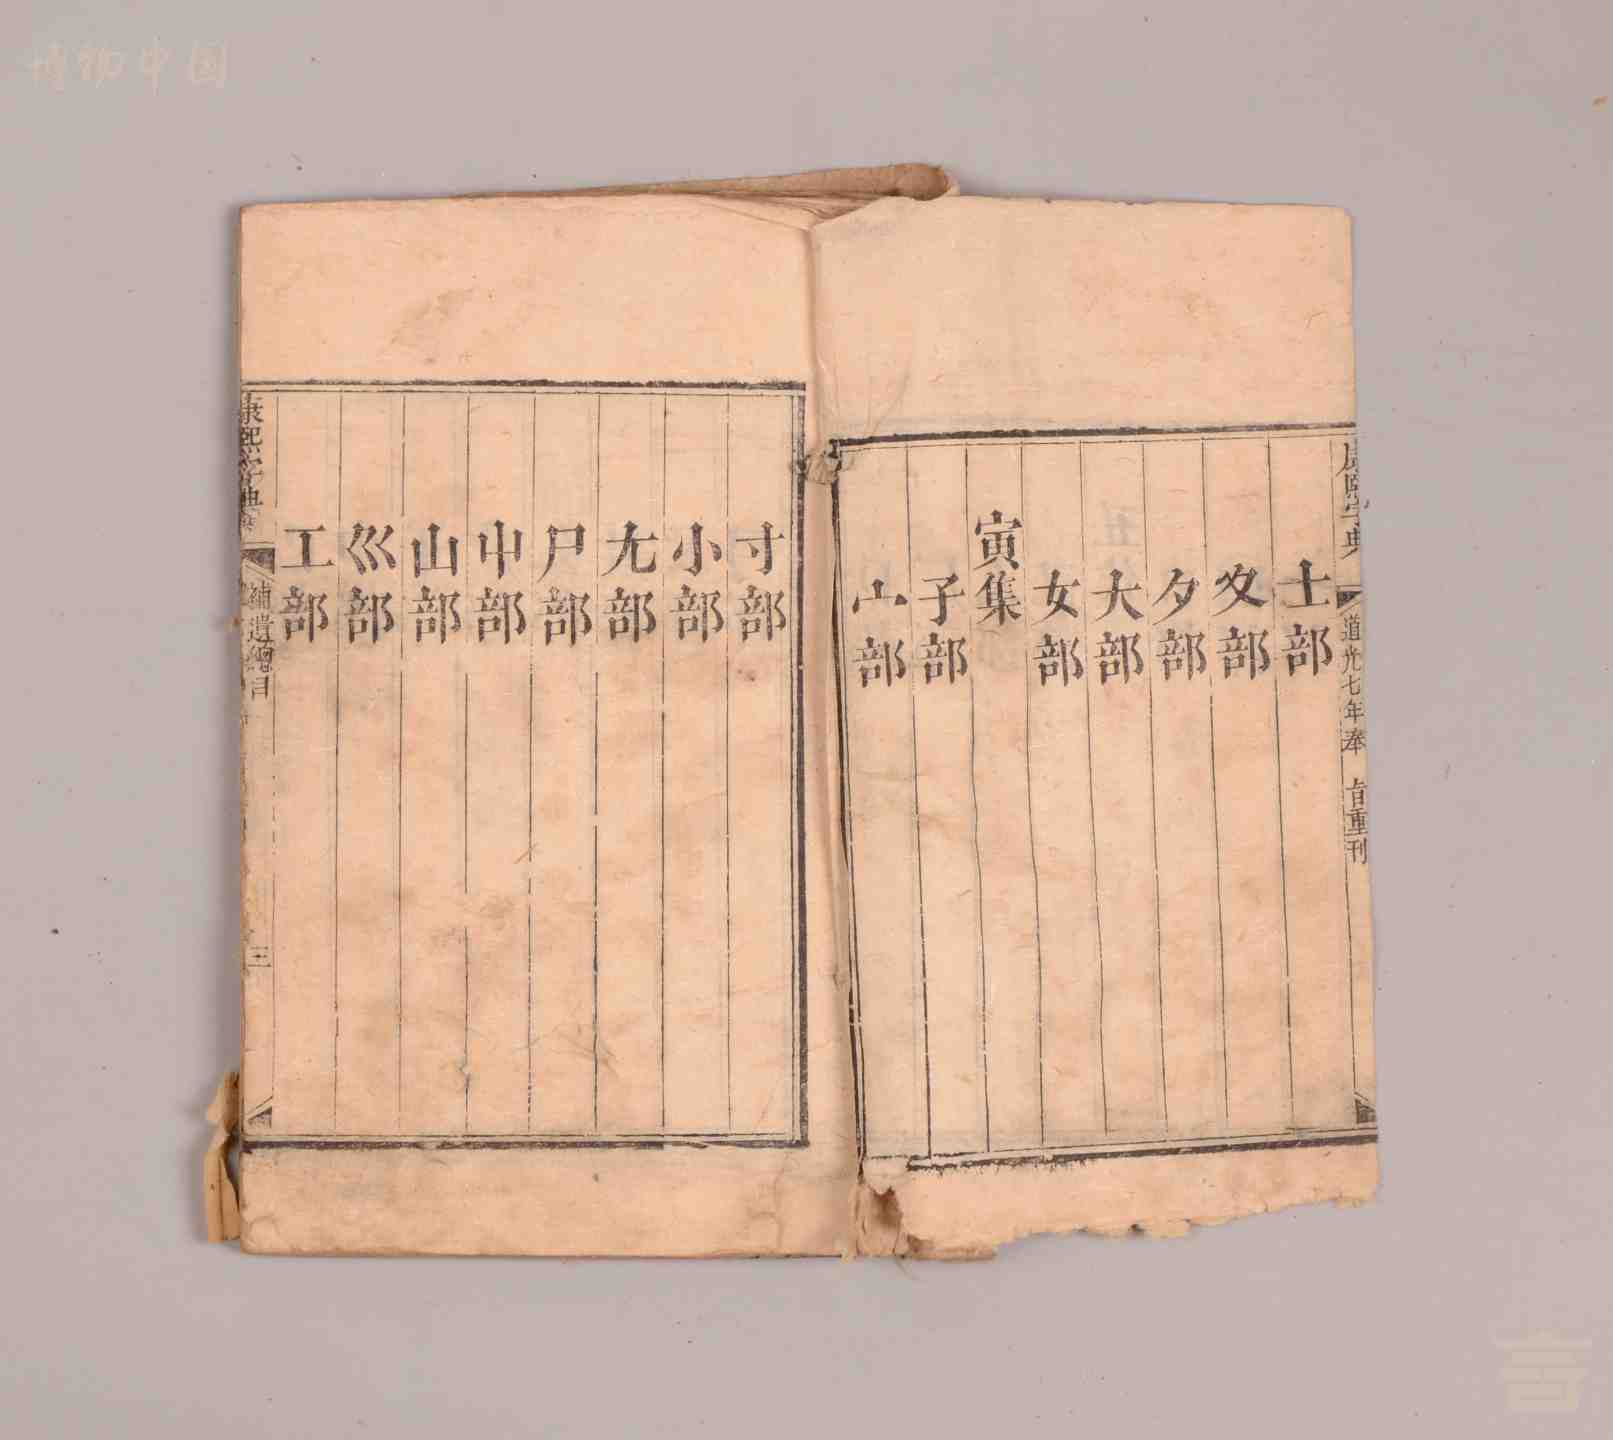 博物中国
康熙字典
道光七年奉 旨重刊
士部
夊部
夕部
大部
女部
寅集
子部
宀部
寸部
小部
尢部
尸部
屮部
山部
巛部
工部
康熙字典
補遺總目
三